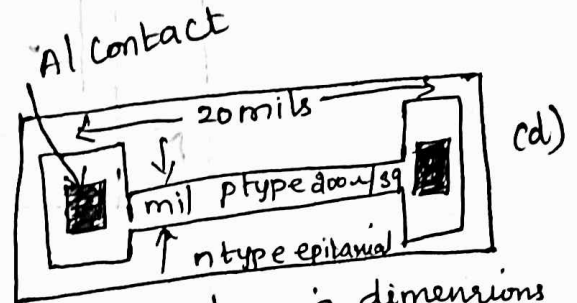 Al contact
20 mils
(d)
mil ptype 200Ω/sq
n type epitaxial
in dimensions